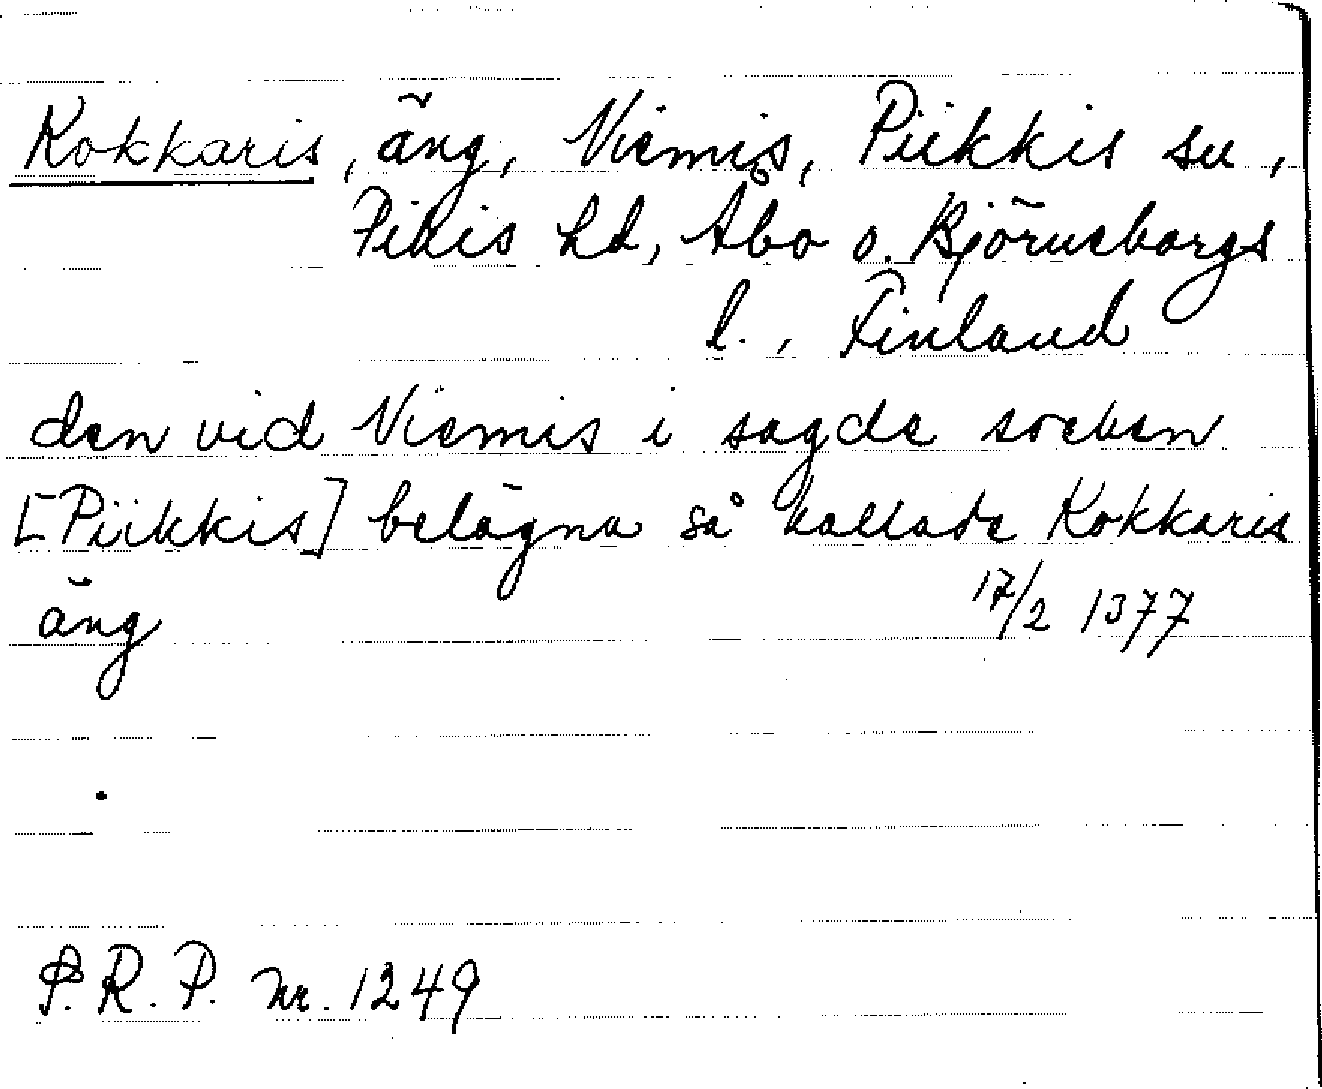 Kokkaris, äng, Viemis, Piikkis sn,
Pikis hd, Åbo o. Björneborgs
l., Finland
den vid Viemis i sagde socken
[Piikkis] belägna så kallade Kokkaris
äng 17/2 1377
S.R.P. nr. 1249